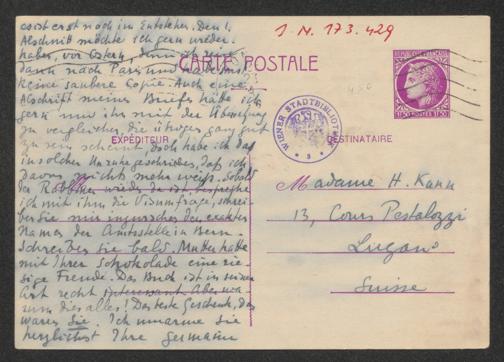 es ist erst noch im Entstehen. Den 1.
Abschnitt möchte ich gern wieder
haben, vor Ostern, denn ich reise
dann nach Paris und habe noch
keine saubere Copie. Auch eine
Abschrift meiner Briefe habe ich
gern nur um ihr mit der Übersetzung
zu vergleichen, die übrigens ganz gut
zu sein scheint, doch habe ich das
in solcher Unruhe geschrieben, daß ich
davon nichts mehr weiß. Sobald
der wieder da ist, bespreche
ich mit ihm die Visumfrage, schrei-
ben Sie mir inzwischen den exakten
Namen der Amtsstelle in Bern.
Schreiben Sie bald. Mutter hatte
mit Ihrer Schokolade eine rie-
sige Freude. Das Buch ist in seiner
Art recht interessant. Aber wa-
rum dies alles! Das beste Geschenk, das
waren Sie. Ich umarme Sie
herzlichst Ihre Germaine
J. N. 173.429
CARTE POSTALE
RÉPUBLIQUE FRANÇAISE
POSTES 1F50
WIENER STADTBIBLIOTHEK
EXPÉDITEUR
DESTINATAIRE
Madame H. Kann
13, Cours Pestalozzi
Lugano
Suisse